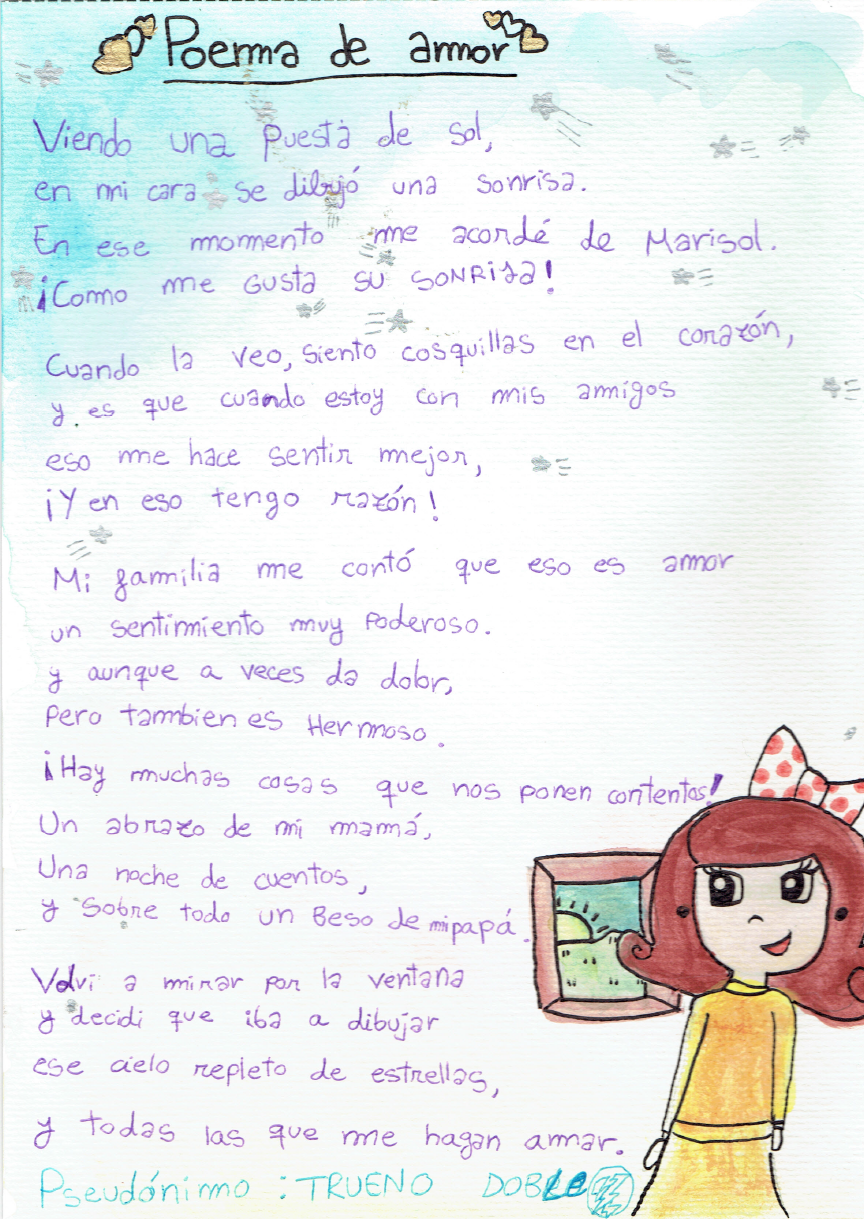 Poema de amor
Viendo una puesta de sol,
en mi cara se dibujó una sonrisa.
En ese momento me acordé de Marisol.
¡Como me Gusta su SONRISA!
Cuando la veo, siento cosquillas en el corazón,
y es que cuando estoy con mis amigos
eso me hace sentir mejor,
¡Y en eso tengo razón!
Mi familia me contó que eso es amor
un sentimiento muy poderoso.
y aunque a veces da dolor,
pero tambien es Hermoso.
¡Hay muchas cosas que nos ponen contentos!
Un abrazo de mi mamá,
Una noche de cuentos,
y sobre todo un Beso de mi papá.
Volvi a mirar por la ventana
y decidi que iba a dibujar
ese cielo repleto de estrellas,
y todas las que me hagan amar.
Pseudónimo : TRUENO DOBLE